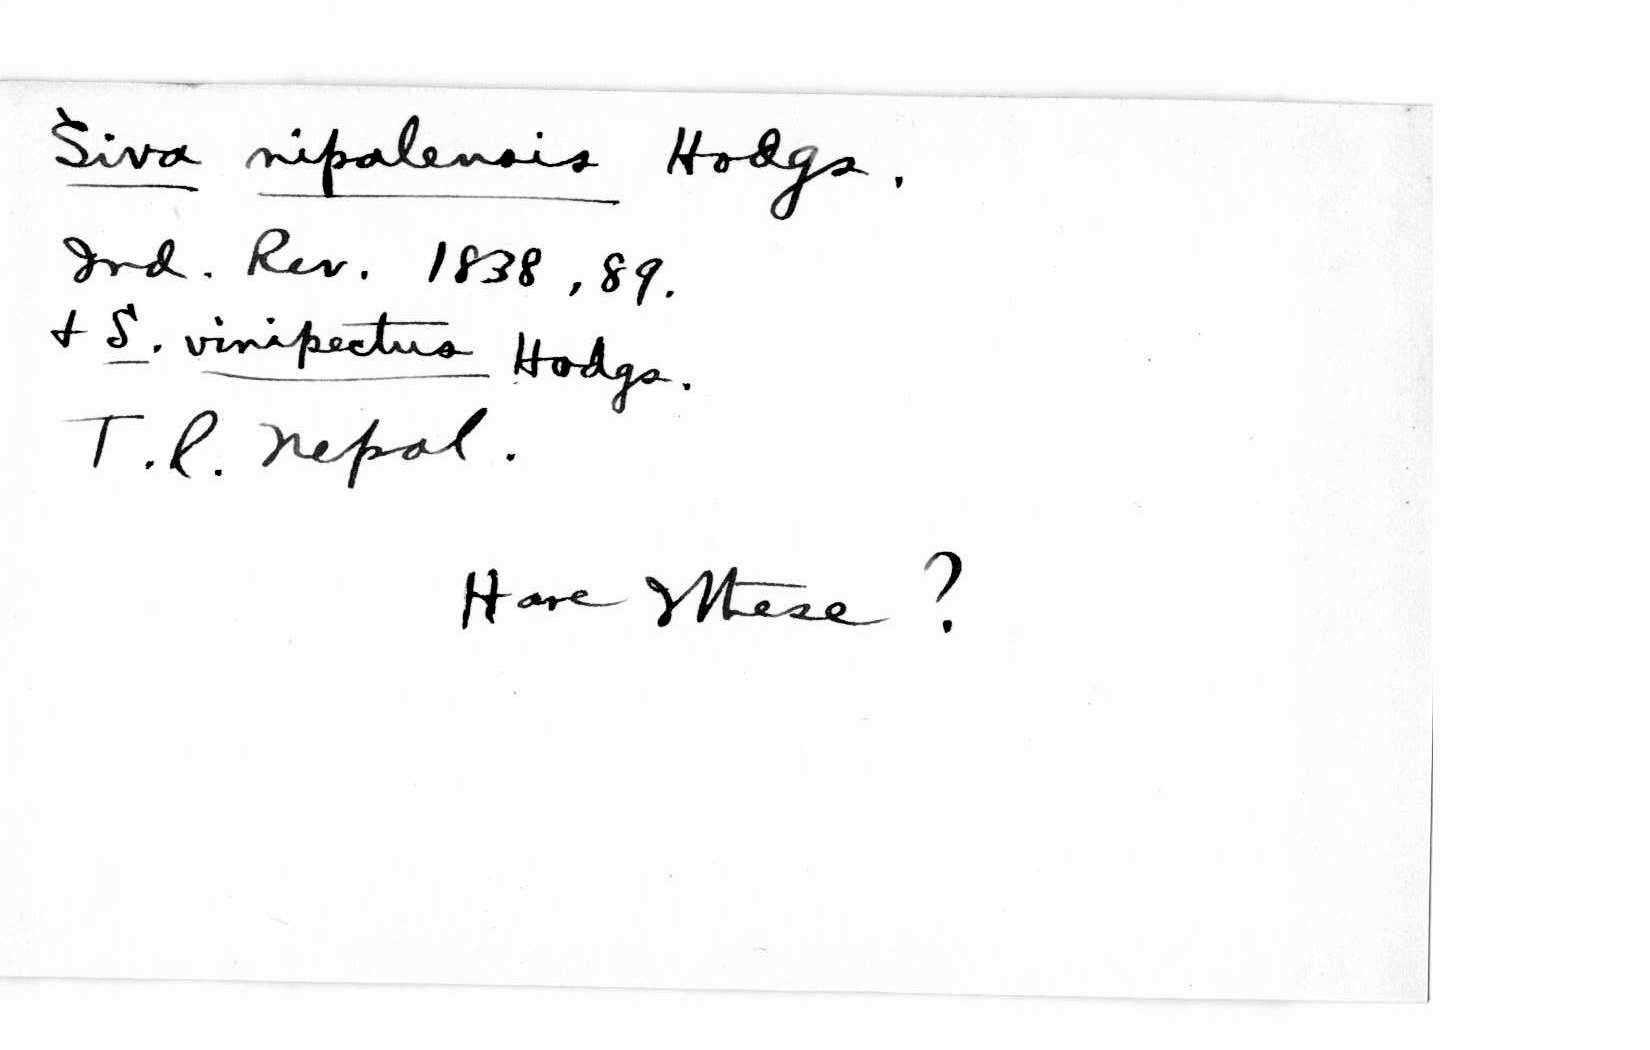 Siva nipalensis Hodgs.
Ind. Rev. 1838, 89.
+ S. vinipectus Hodgs.
T.L. Nepal.
Have I these ?